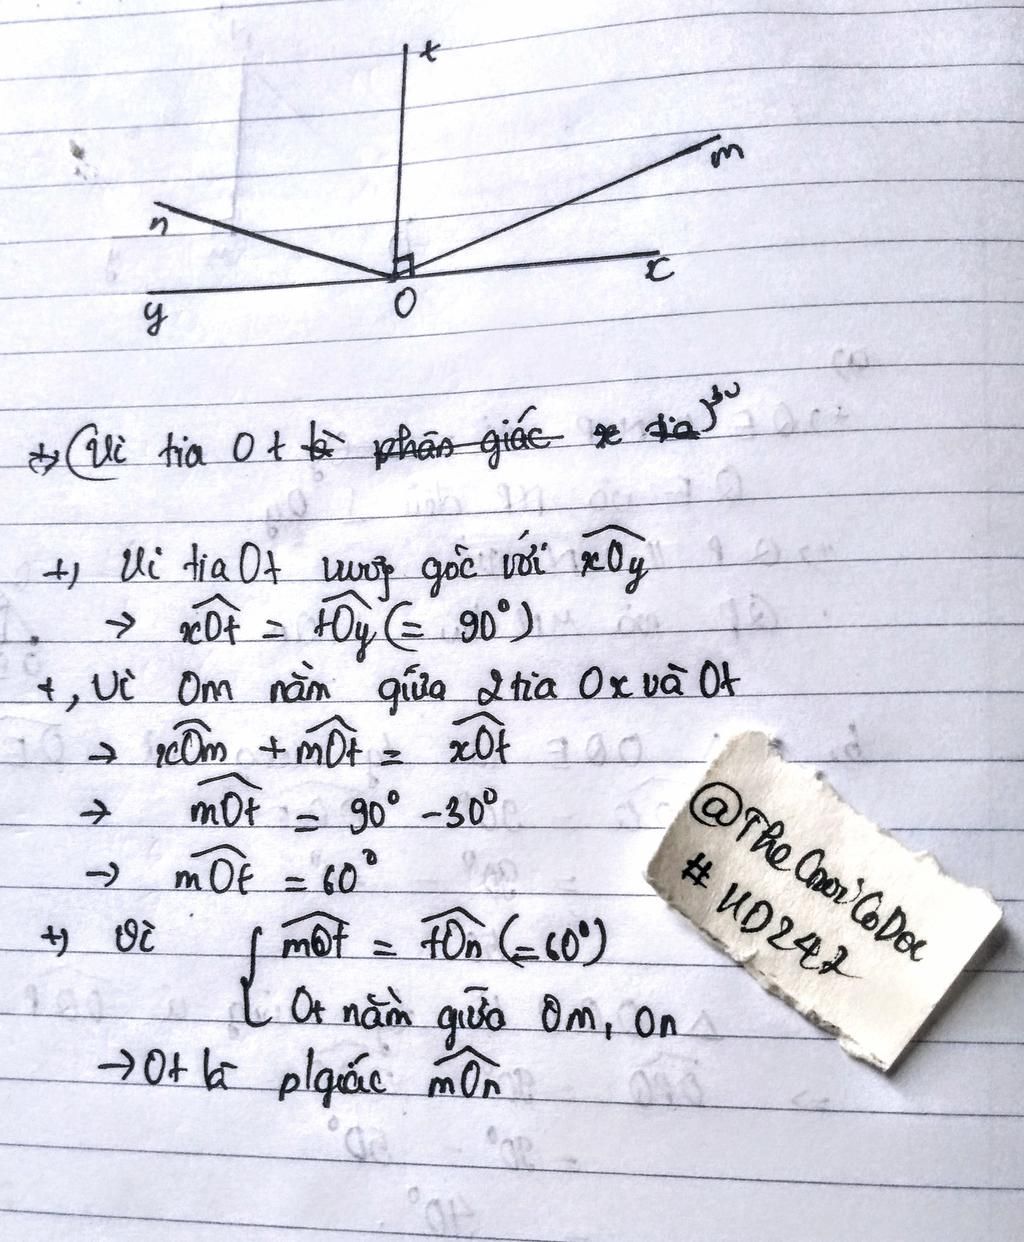 t
m
n
x
y
O
+) (Vì tia Ot là phân giác x tia)
+) Vì tia Ot vuông góc với xOy
→ xOt = tOy (= 90°)
+, Vì Om nằm giữa 2 tia Ox và Ot
→ xOm + mOt = xOt
→ mOt = 90° - 30°
→ mOt = 60°
+) Vì { mOt = tOn (= 60°)
Ot nằm giữa Om, On
→ Ot là p/giác mOn
# UD247